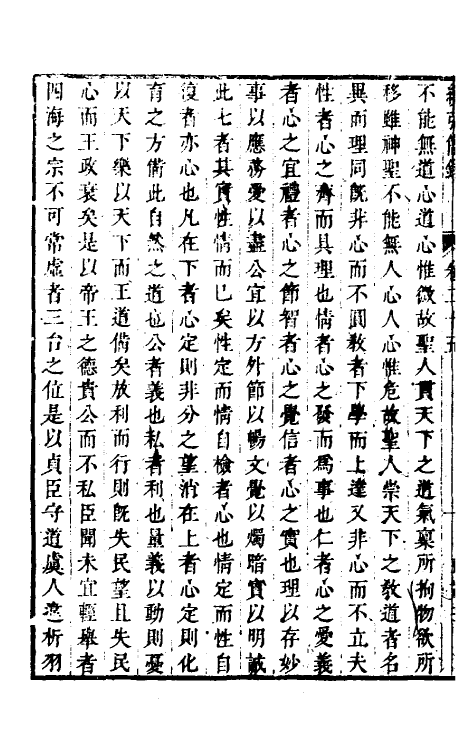 不能無道心道心惟微故聖人貫天下之道氣稟所拘物欲所
移雖神聖不能無人心人心惟危故聖人崇天下之敎道者名
異而理同旣非心而不圓敎者下學而上達又非心而不立夫
性者心之齊而具理也情者心之發而爲事也仁者心之愛義
者心之宜禮者心之節智者心之覺信者心之實也理以存妙
事以應務愛以盡公宜以方外節以暢文覺以燭暗實以明誠
此七者其實性情而已矣性定而情自檢者心也情定而性自
復者亦心也凡在下者心定則非分之望消在上者心定則化
育之方備此自然之道也公者義也私者利也量義以動則憂
以天下樂以天下而王道備矣放利而行則旣失民望且失民
心而王政衰矣是以帝王之德貴公而不私臣聞未宜輕舉者
四海之宗不可常虛者三台之位是以貞臣守道虞人悉析羽